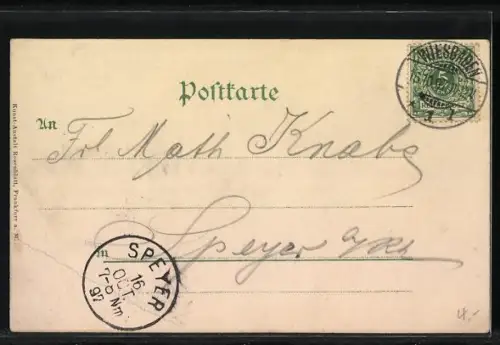 WIESBADEN
5
1
Postkarte
Kunst-Anstalt Rosenblatt, Frankfurt a. M.
An
Frl. Math Knabs
in Speyer a/Rh
SPEYER
16
OCT.
7-8 Nm.
97
4.-